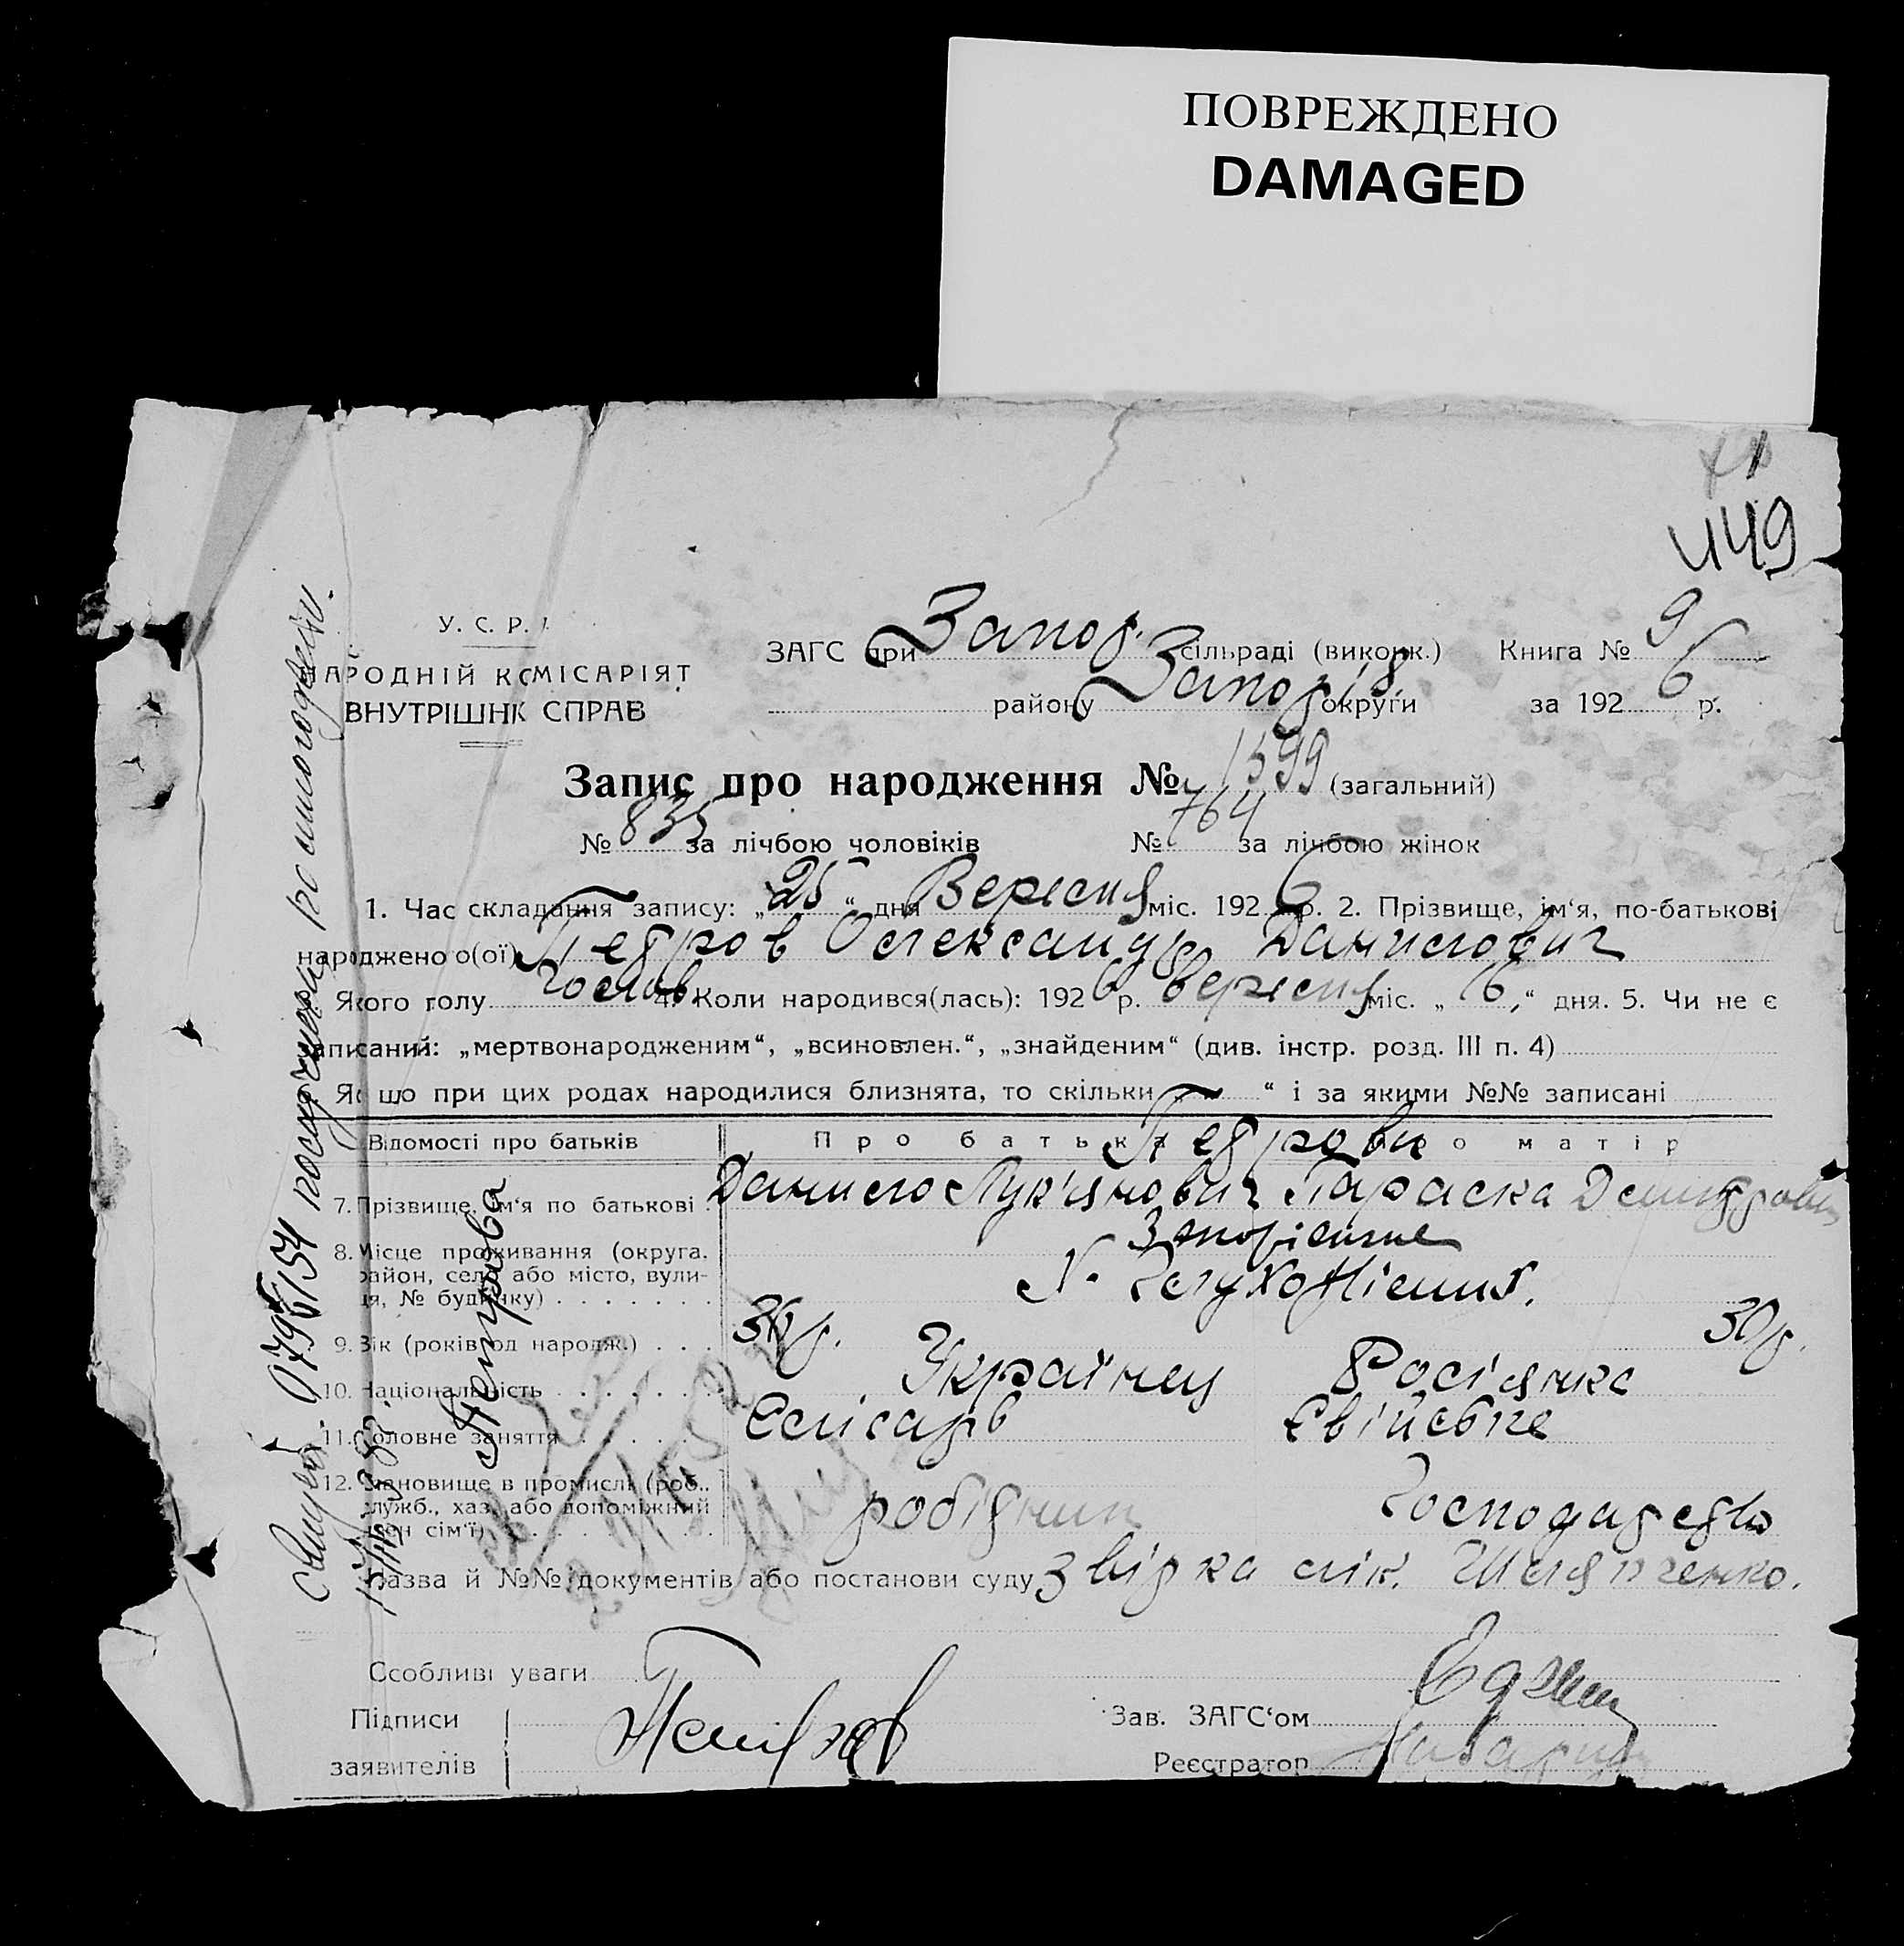 ПОВРЕЖДЕНО
DAMAGED
449
У. С. Р. Р.
НАРОДНІЙ КОМІСАРІЯТ
ВНУТРІШНІХ СПРАВ
ЗАГС при Запор. сільраді (виконк.) Книга № 9
району Запоріз округи за 1926 р.
Запис про народження № 1599 (загальний)
№ 835 за лічбою чоловіків № 764 за лічбою жінок
1. Час складання запису: „25“ дня Вересня міс. 1926 р. 2. Прізвище, ім‘я, по-батькові
народженого(ої) Педров Олександр Данилович
Якого полу чолов. 4. Коли народився(лась): 1926 р. Вересня міс. „6“ дня. 5. Чи не є
записаний: „мертвонародженим“, „всиновлен.“, „знайденим“ (див. інстр. розд. III п. 4)
Якщо при цих родах народилися близнята, то скільки „—“ і за якими №№ записані
Відомості про батьків Про батька Про матір
Педрови
7. Прізвище, ім‘я по батькові Данило Лук‘янович Параска
8. Місце проживання (округа, Запоріжже
район, село або місто, вули-
ця, № будинку)
9. Вік (років од народж.) 36 р. 30 р.
10. Національність Українец Росіянка
11. Головне заняття Слісарь Свійське
12. Становище в промислі (роб.,
служб., хаз. або допоміжний робідник Господарсдво
член сім‘ї)
Назва й №№ документів або постанови суду Звірка лік.
Особливі уваги
Підписи Зав. ЗАГС‘ом
заявителів Петров Реєстратор
Петрова